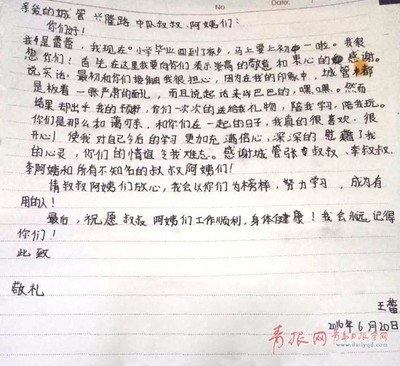 No.
亲爱的城管兴隆路中队叔叔、阿姨们:
你们好!
我是蕾蕾,我现在小学毕业回到了家,马上要上初一啦。我很
想你们!首先在这里我要向你们表示崇高的敬意和衷心的感谢。
说实话,最初和你们接触我很担心,因为在我的印象中,城管都
是板着一张严肃的面孔,而且说起话来凶巴巴的,嘿,嘿。然而
结果却出乎我的预料,你们一次次的送给我礼物,陪我学习,陪我玩。
你们是那么和蔼可亲,和你们在一起的日子,我真的很喜欢、很
开心!使我对自己今后的学习更加充满信心,深深的慰藉了我
的心灵,你们的情谊令我难忘。感谢城管张叔叔、李叔叔、
李阿姨和所有不知名的叔叔阿姨们!
请叔叔阿姨们放心,我会以你们为榜样,努力学习,成为有
用的人!
最后,祝愿叔叔阿姨们工作顺利,身体健康!我会永远记得
你们!
此致
敬礼
王蕾
2016年6月20日
青报网 青岛日报官网
www.dailyqd.com